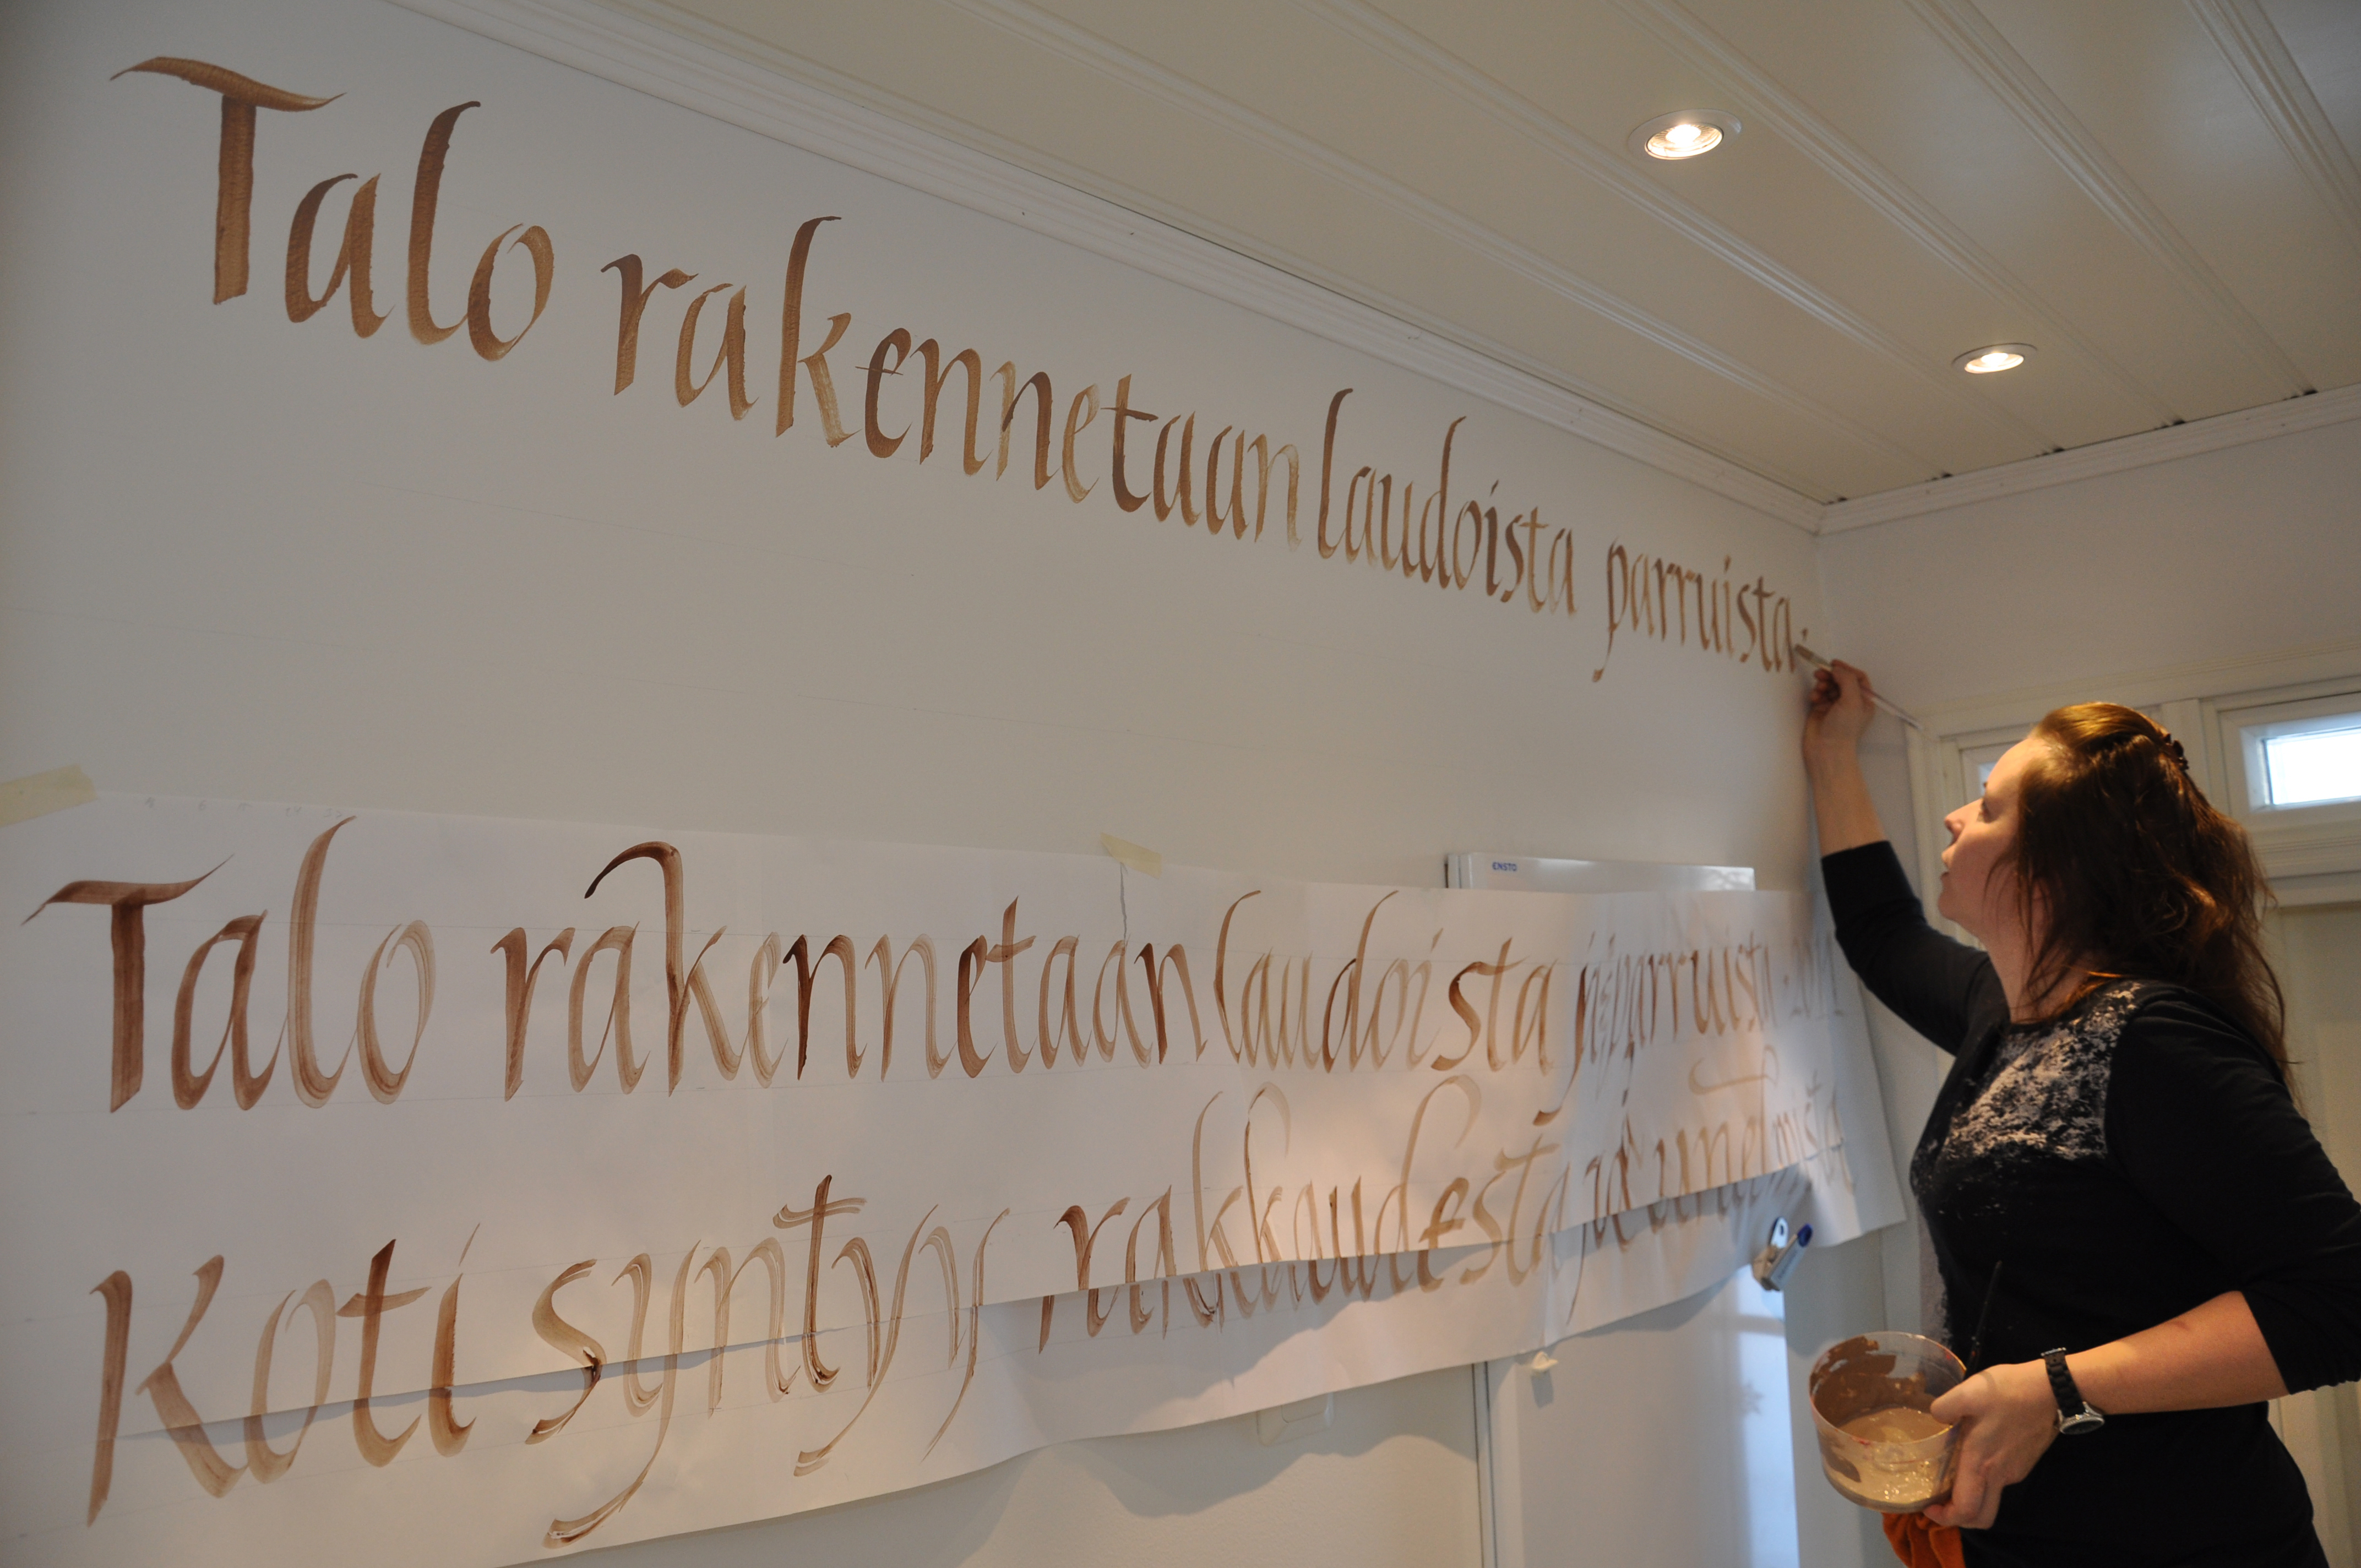 Talo rakennetaan laudoista parruista.
ENSTO
Talo rakennetaan laudoista ja parruista
Koti syntyy rakkaudesta ja unelmista